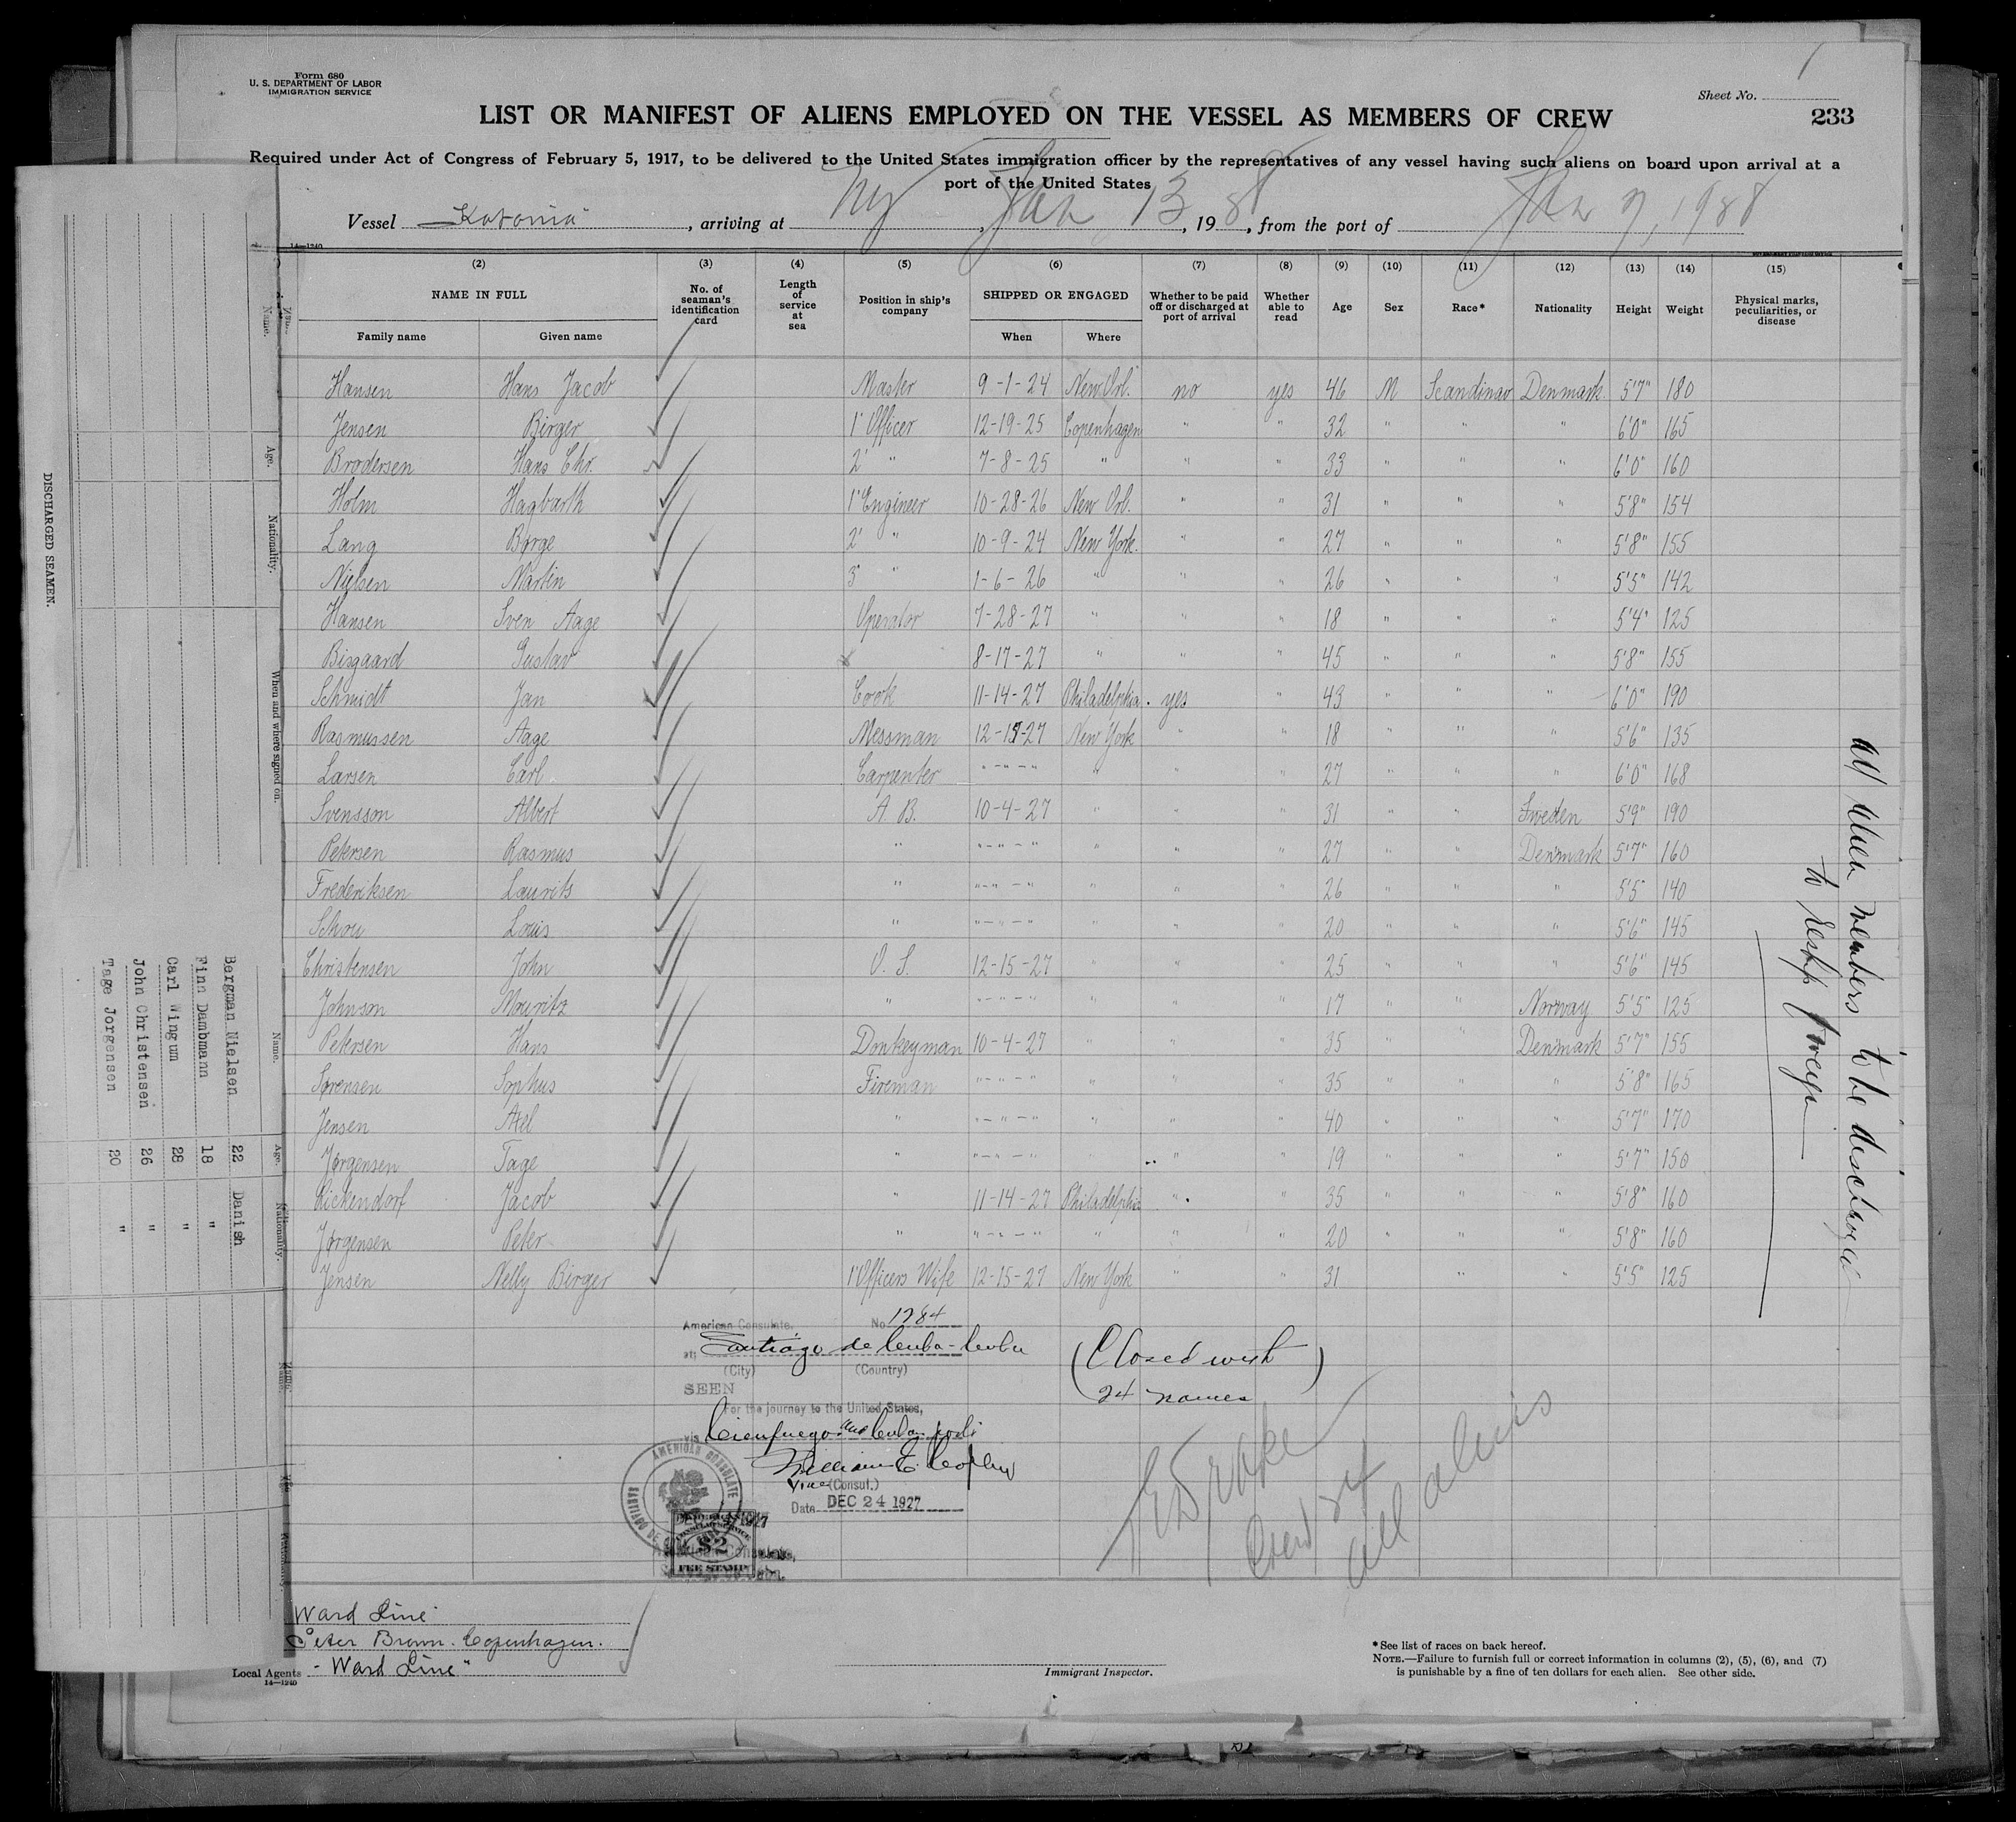 Form 680
U. S. DEPARTMENT OF LABOR
IMMIGRATION SERVICE
Sheet No.
1
LIST OR MANIFEST OF ALIENS EMPLOYED ON THE VESSEL AS MEMBERS OF CREW
233
Required under Act of Congress of February 5, 1917, to be delivered to the United States immigration officer by the representatives of any vessel having such aliens on board upon arrival at a
port of the United States
Vessel , arriving at Ny , Jan 13 , 19 8 , from the port of
14—1240
(2) (3) (4) (5) (6) (7) (8) (9) (10) (11) (12) (13) (14) (15)
NAME IN FULL No. of seaman's identification card Length of service at sea Position in ship's company SHIPPED OR ENGAGED Whether to be paid off or discharged at port of arrival Whether able to read Age Sex Race* Nationality Height Weight Physical marks, peculiarities, or disease
Family name Given name When Where
Hansen Hans Jacob Master 9-1-24 New Orl. no yes 46 M Scandinav Denmark 5'7" 180
Jensen Birger 1' Officer 12-19-25 Copenhagen " " 32 " " " 6'0" 165
Brodersen Hans Chr. 2' " 7-8-25 " " " 33 " " " 6'0" 160
Holm Hagbarth 1' Engineer 10-28-26 New Orl. " " 31 " " " 5'8" 154
Lang Børge 2' " 10-9-24 New York. " " 27 " " " 5'8" 155
Nielsen Martin 3' " 1-6-26 " " " 26 " " " 5'5" 142
Hansen Sven Aage Operator 7-28-27 " " " 18 " " " 5'4" 125
Bisgaard Gustav 8-17-27 " " " 45 " " " 5'8" 155
Schmidt Jan Cook 11-14-27 Philadelphia yes " 43 " " " 6'0" 190
Rasmussen Aage Messman 12-15-27 New York " " 18 " " " 5'6" 135
Larsen Carl Carpenter " - " - " " " " 27 " " " 6'0" 168
Svensson Albert A. B. 10-4-27 " " " 31 " " Sweden 5'9" 190
Petersen Rasmus " " - " - " " " " 27 " " Denmark 5'7" 160
Frederiksen Laurits " " - " - " " " " 26 " " " 5'5" 140
Schou Louis " " - " - " " " " 20 " " " 5'6" 145
Christensen John O. S. 12-15-27 " " " 25 " " " 5'6" 145
Johnson Mouritz " " - " - " " " " 17 " " Norway 5'5" 125
Petersen Hans Donkeyman 10-4-27 " " " 35 " " Denmark 5'7" 155
Sørensen Sophus Fireman " - " - " " " " 35 " " " 5'8" 165
Jensen Axel " " - " - " " " " 40 " " " 5'7" 170
Jørgensen Tage " " - " - " " " " 19 " " " 5'7" 150
Jacob " 11-14-27 Philadelphia " " 35 " " " 5'8" 160
Jørgensen Peter " " - " - " " " " 20 " " " 5'8" 160
Jensen Nelly Birger 1' Officers Wife 12-15-27 New York " " 31 " " 5'5" 125
All members to be discharged
to reship foreign
American Consulate. No. 1784
at Santiago de Cuba - Cuba
(City) (Country)
SEEN
For the journey to the United States,
via Cienfuegos and Cuban ports
William E.
Vice (Consul.)
Date DEC 24 1927
AMERICAN CONSULATE
SANTIAGO DE CUBA
CONSULAR SERVICE
$2
FEE STAMP
American Consulate,
(Closed with
24 names)
Crew 24
all aliens
Ward Line
Peter Brown. Copenhagen.
Local Agents - "Ward Line"
14—1240
Immigrant Inspector.
*See list of races on back hereof.
NOTE.—Failure to furnish full or correct information in columns (2), (5), (6), and (7)
is punishable by a fine of ten dollars for each alien. See other side.
DISCHARGED SEAMEN.
Name. Age. Nationality. When and where signed on.
Name. Age. Nationality.
Bergman Nielsen 22 Danish
Finn Dambmann 18 "
Carl Wingum 28 "
John Christensen 26 "
Tage Jorgensen 20 "